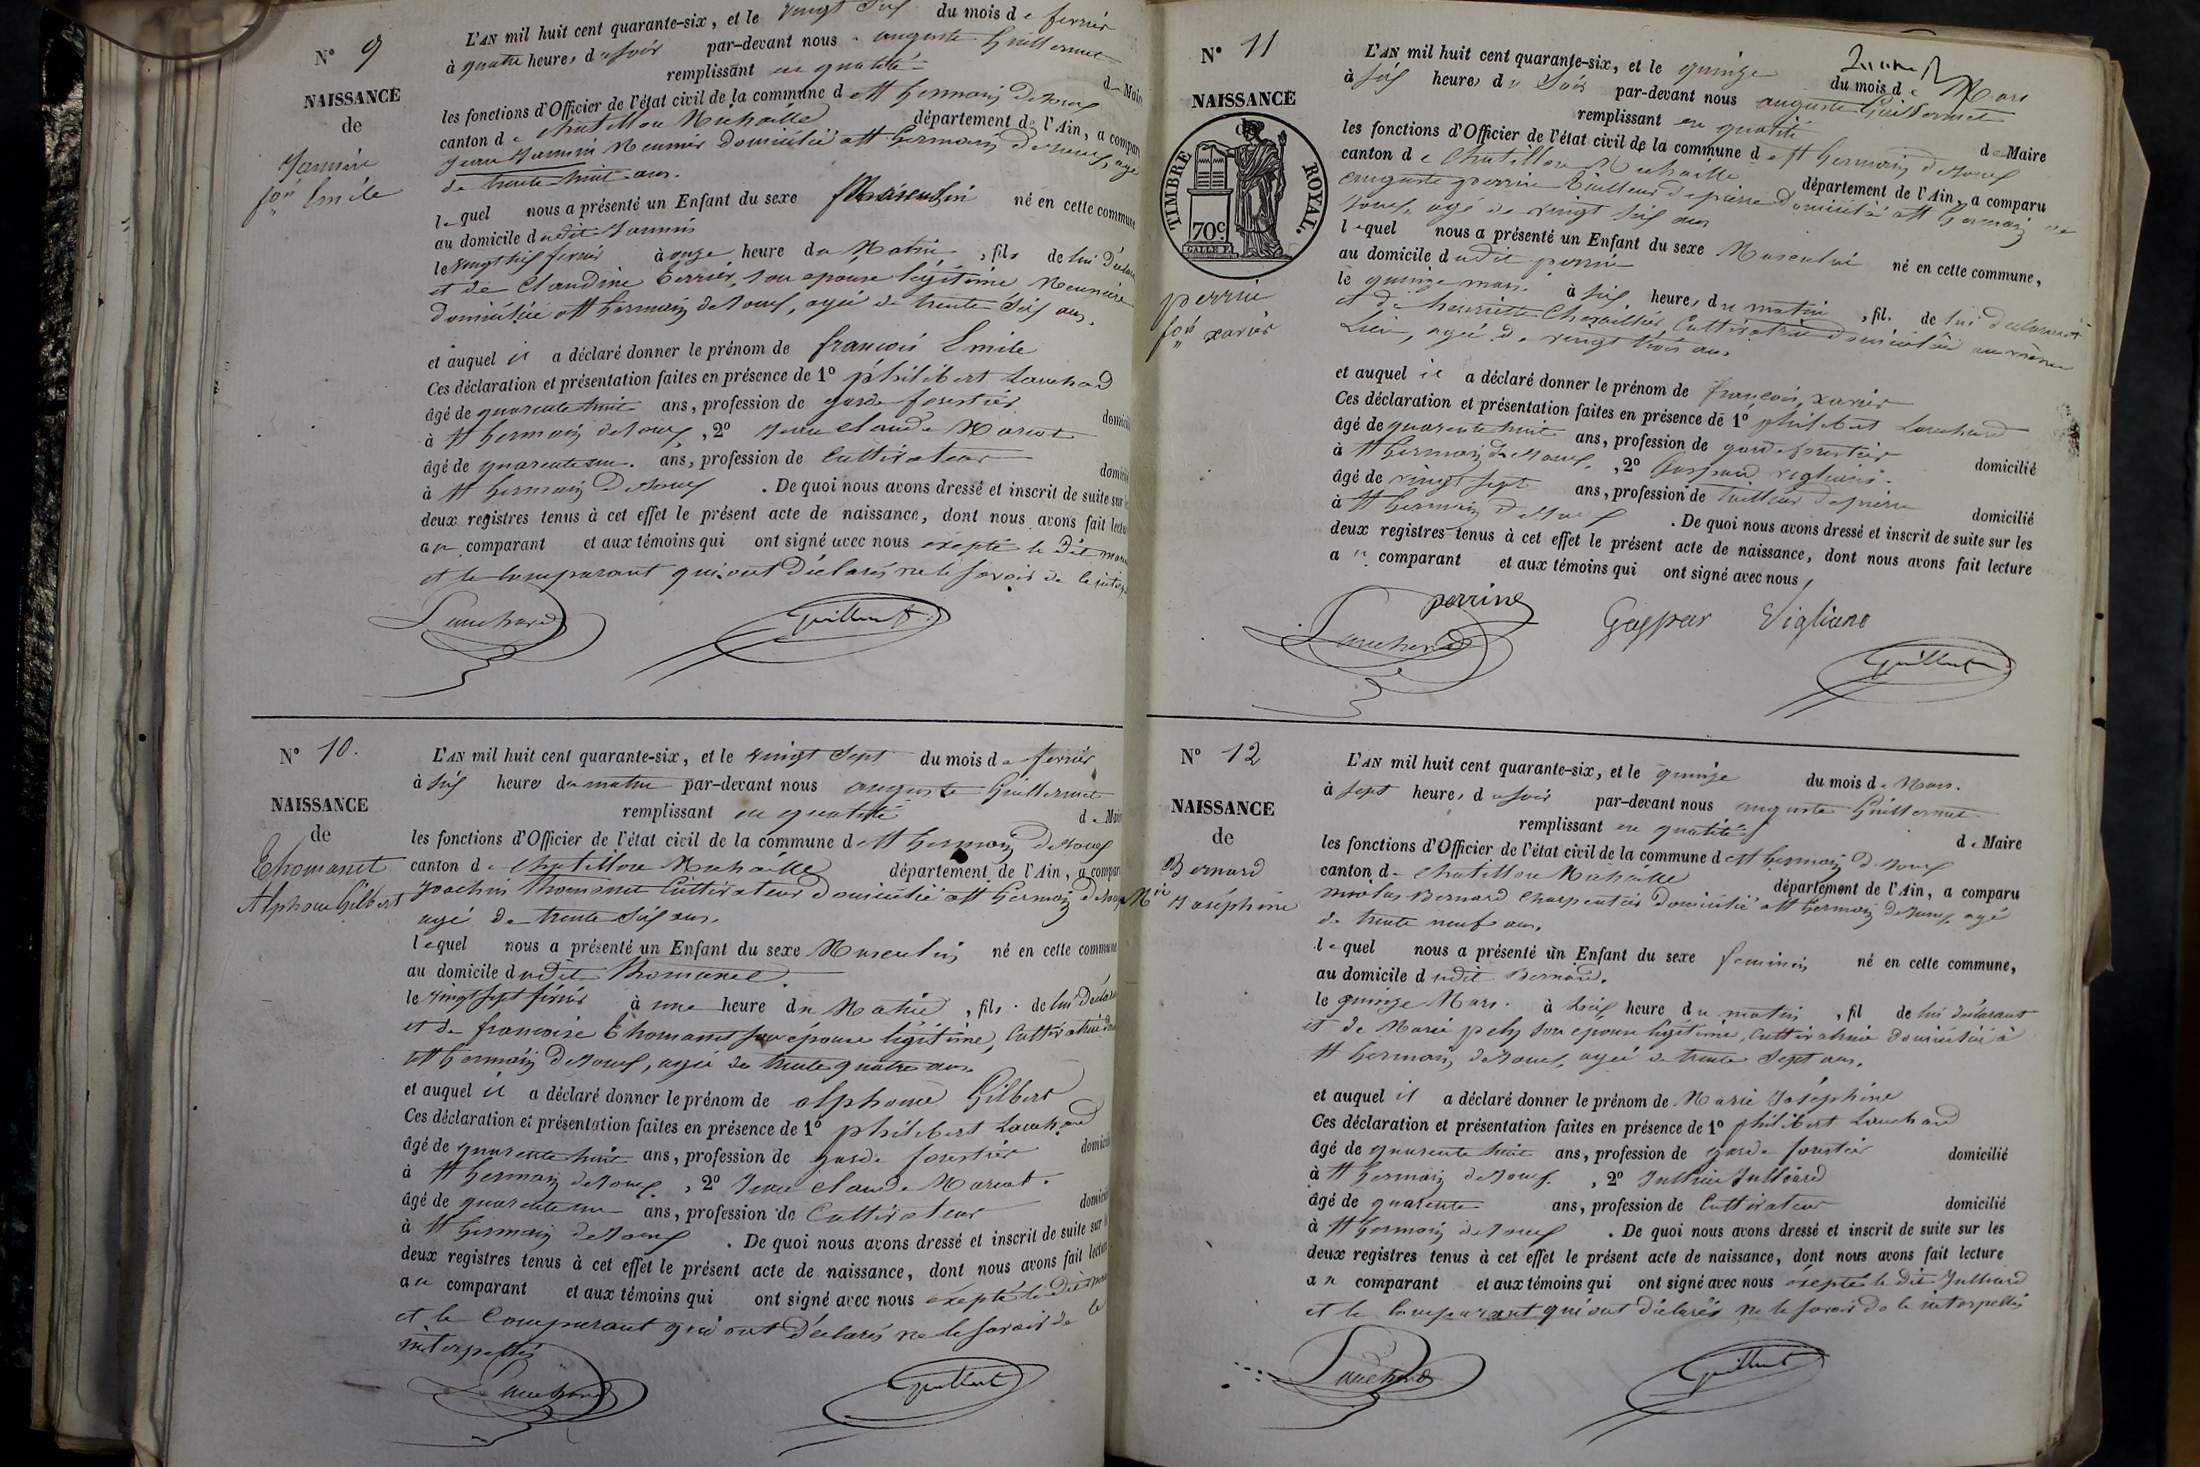 N° 9
NAISSANCE
de
Jannin
fois Emile
L'AN mil huit cent quarante-six, et le vingt six du mois de fevrier
à quatre heures du soir par-devant nous auguste Guillermet
remplissant en qualité de Maire
les fonctions d'Officier de l'état civil de la commune de st Germain de Joux
canton de chatillon Michaille département de l'Ain, a comparu
Jean Jannin Meunier domicilié a st Germain de Joux, agé
de trente huit ans.
lequel nous a présenté un Enfant du sexe Masculin né en cette commune
au domicile dudit Jannin
le vingt six fevrier à onze heure du Matin, fils de lui déclarant
et de Claudine Perrier, son epouse légitime Meunière
domiciliée a st Germain de Joux, agée de trente six ans.
et auquel il a déclaré donner le prénom de francois Emile
Ces déclaration et présentation faites en présence de 1° philibert Lauchard
âgé de quarente huit ans, profession de garde forestier domicilié
à st Germain de Joux, 2° Jean claude Marcot
âgé de quarente un ans, profession de Cultivateur domicilié
à st Germain de Joux. De quoi nous avons dressé et inscrit de suite sur les
deux registres tenus à cet effet le présent acte de naissance, dont nous avons fait lecture
au comparant et aux témoins qui ont signé avec nous exepté le dit Marcot
et le Comparant qui ont déclarés ne le savoir de le interp.
Lauchard Guillermet
N° 10.
NAISSANCE
de
Thomanet
Alphonse Gilbert
L'AN mil huit cent quarante-six, et le vingt sept du mois de fevrier
à six heure du matin par-devant nous auguste Guillermet
remplissant en qualité de Maire
les fonctions d'Officier de l'état civil de la commune de st Germain de Joux
canton de chatillon Michaille département de l'Ain, a comparu
Joachin Thomanet Cultivateur domicilié a st Germain de Joux
agé de trente six ans.
lequel nous a présenté un Enfant du sexe Masculin né en cette commune
au domicile dudit Thomanet.
le vingt sept février à une heure du Matin, fils de lui déclarant
et de francoise Thomanet son épouse légitime, Cultivatrice
st Germain de Joux, agée de trente quatre ans.
et auquel il a déclaré donner le prénom de alphonse Gilbert
Ces déclaration et présentation faites en présence de 1° philibert Lauchard
âgé de quarente huit ans, profession de garde forestier domicilié
à st Germain de Joux, 2° Jean claude Marcot.
âgé de quarente un ans, profession de Cultivateur domicilié
à st Germain de Joux. De quoi nous avons dressé et inscrit de suite sur les
deux registres tenus à cet effet le présent acte de naissance, dont nous avons fait lecture
au comparant et aux témoins qui ont signé avec nous exepté le dit Marcot
et le Comparant qui ont déclarés ne le savoir de le
interpellés
Lauchard Guillermet
N° 11
NAISSANCE
TIMBRE ROYAL.
70c.
perrin
fois xavier
L'AN mil huit cent quarante-six, et le quinze du mois de Mars
à six heures du Soir par-devant nous auguste Guillermet
remplissant en qualité de Maire
les fonctions d'Officier de l'état civil de la commune de st Germain de Joux
canton de Chatillon Michaille département de l'Ain, a comparu
auguste perrin tailleur de pierre domicilié a st Germain de
Joux, agé de vingt six ans
lequel nous a présenté un Enfant du sexe Masculin né en cette commune,
au domicile dudit perrin
le quinze mars à six heures du matin, fils de lui declarant
et de henriette Chevallier, Cultivatrice domiciliée au même
Lieu, agée de vingt trois ans.
et auquel il a déclaré donner le prénom de francois xavier
Ces déclaration et présentation faites en présence de 1° philibert Lauchard
âgé de quarente huit ans, profession de garde forestier domicilié
à st Germain de Joux, 2° Gaspard vigliano.
âgé de vingt sept ans, profession de Tailleur de pierre domicilié
à st Germain de Joux. De quoi nous avons dressé et inscrit de suite sur les
deux registres tenus à cet effet le présent acte de naissance, dont nous avons fait lecture
au comparant et aux témoins qui ont signé avec nous,
perrin
Lauchard Gaspar Vigliano
Guillermet
N° 12
NAISSANCE
de
Bernard
Mie Joséphine
L'AN mil huit cent quarante-six, et le quinze du mois de Mars.
à sept heures du soir par-devant nous auguste Guillermet
remplissant en qualité de Maire
les fonctions d'Officier de l'état civil de la commune de st Germain de Joux
canton de Chatillon Michaille département de l'Ain, a comparu
nicolas Bernard Charpentier domicilié a st Germain de Joux, agé
de trente neuf ans.
lequel nous a présenté un Enfant du sexe feminin né en cette commune,
au domicile dudit Bernard.
le quinze Mars. à six heure du matin, fil de lui déclarant
et de Marie pely son epouse légitime, Cultivatrice domiciliée à
st Germain de Joux, agée de trente sept ans.
et auquel il a déclaré donner le prénom de Marie Joséphine
Ces déclaration et présentation faites en présence de 1° philibert Lauchard
âgé de quarente huit ans, profession de garde forestier domicilié
à st Germain de Joux, 2° Julliard
âgé de quarente ans, profession de Cultivateur domicilié
à st Germain de Joux. De quoi nous avons dressé et inscrit de suite sur les
deux registres tenus à cet effet le présent acte de naissance, dont nous avons fait lecture
au comparant et aux témoins qui ont signé avec nous exepté le dit Julliard
et le Comparant qui ont déclarés ne le savoir de le interpellés
Lauchard Guillermet